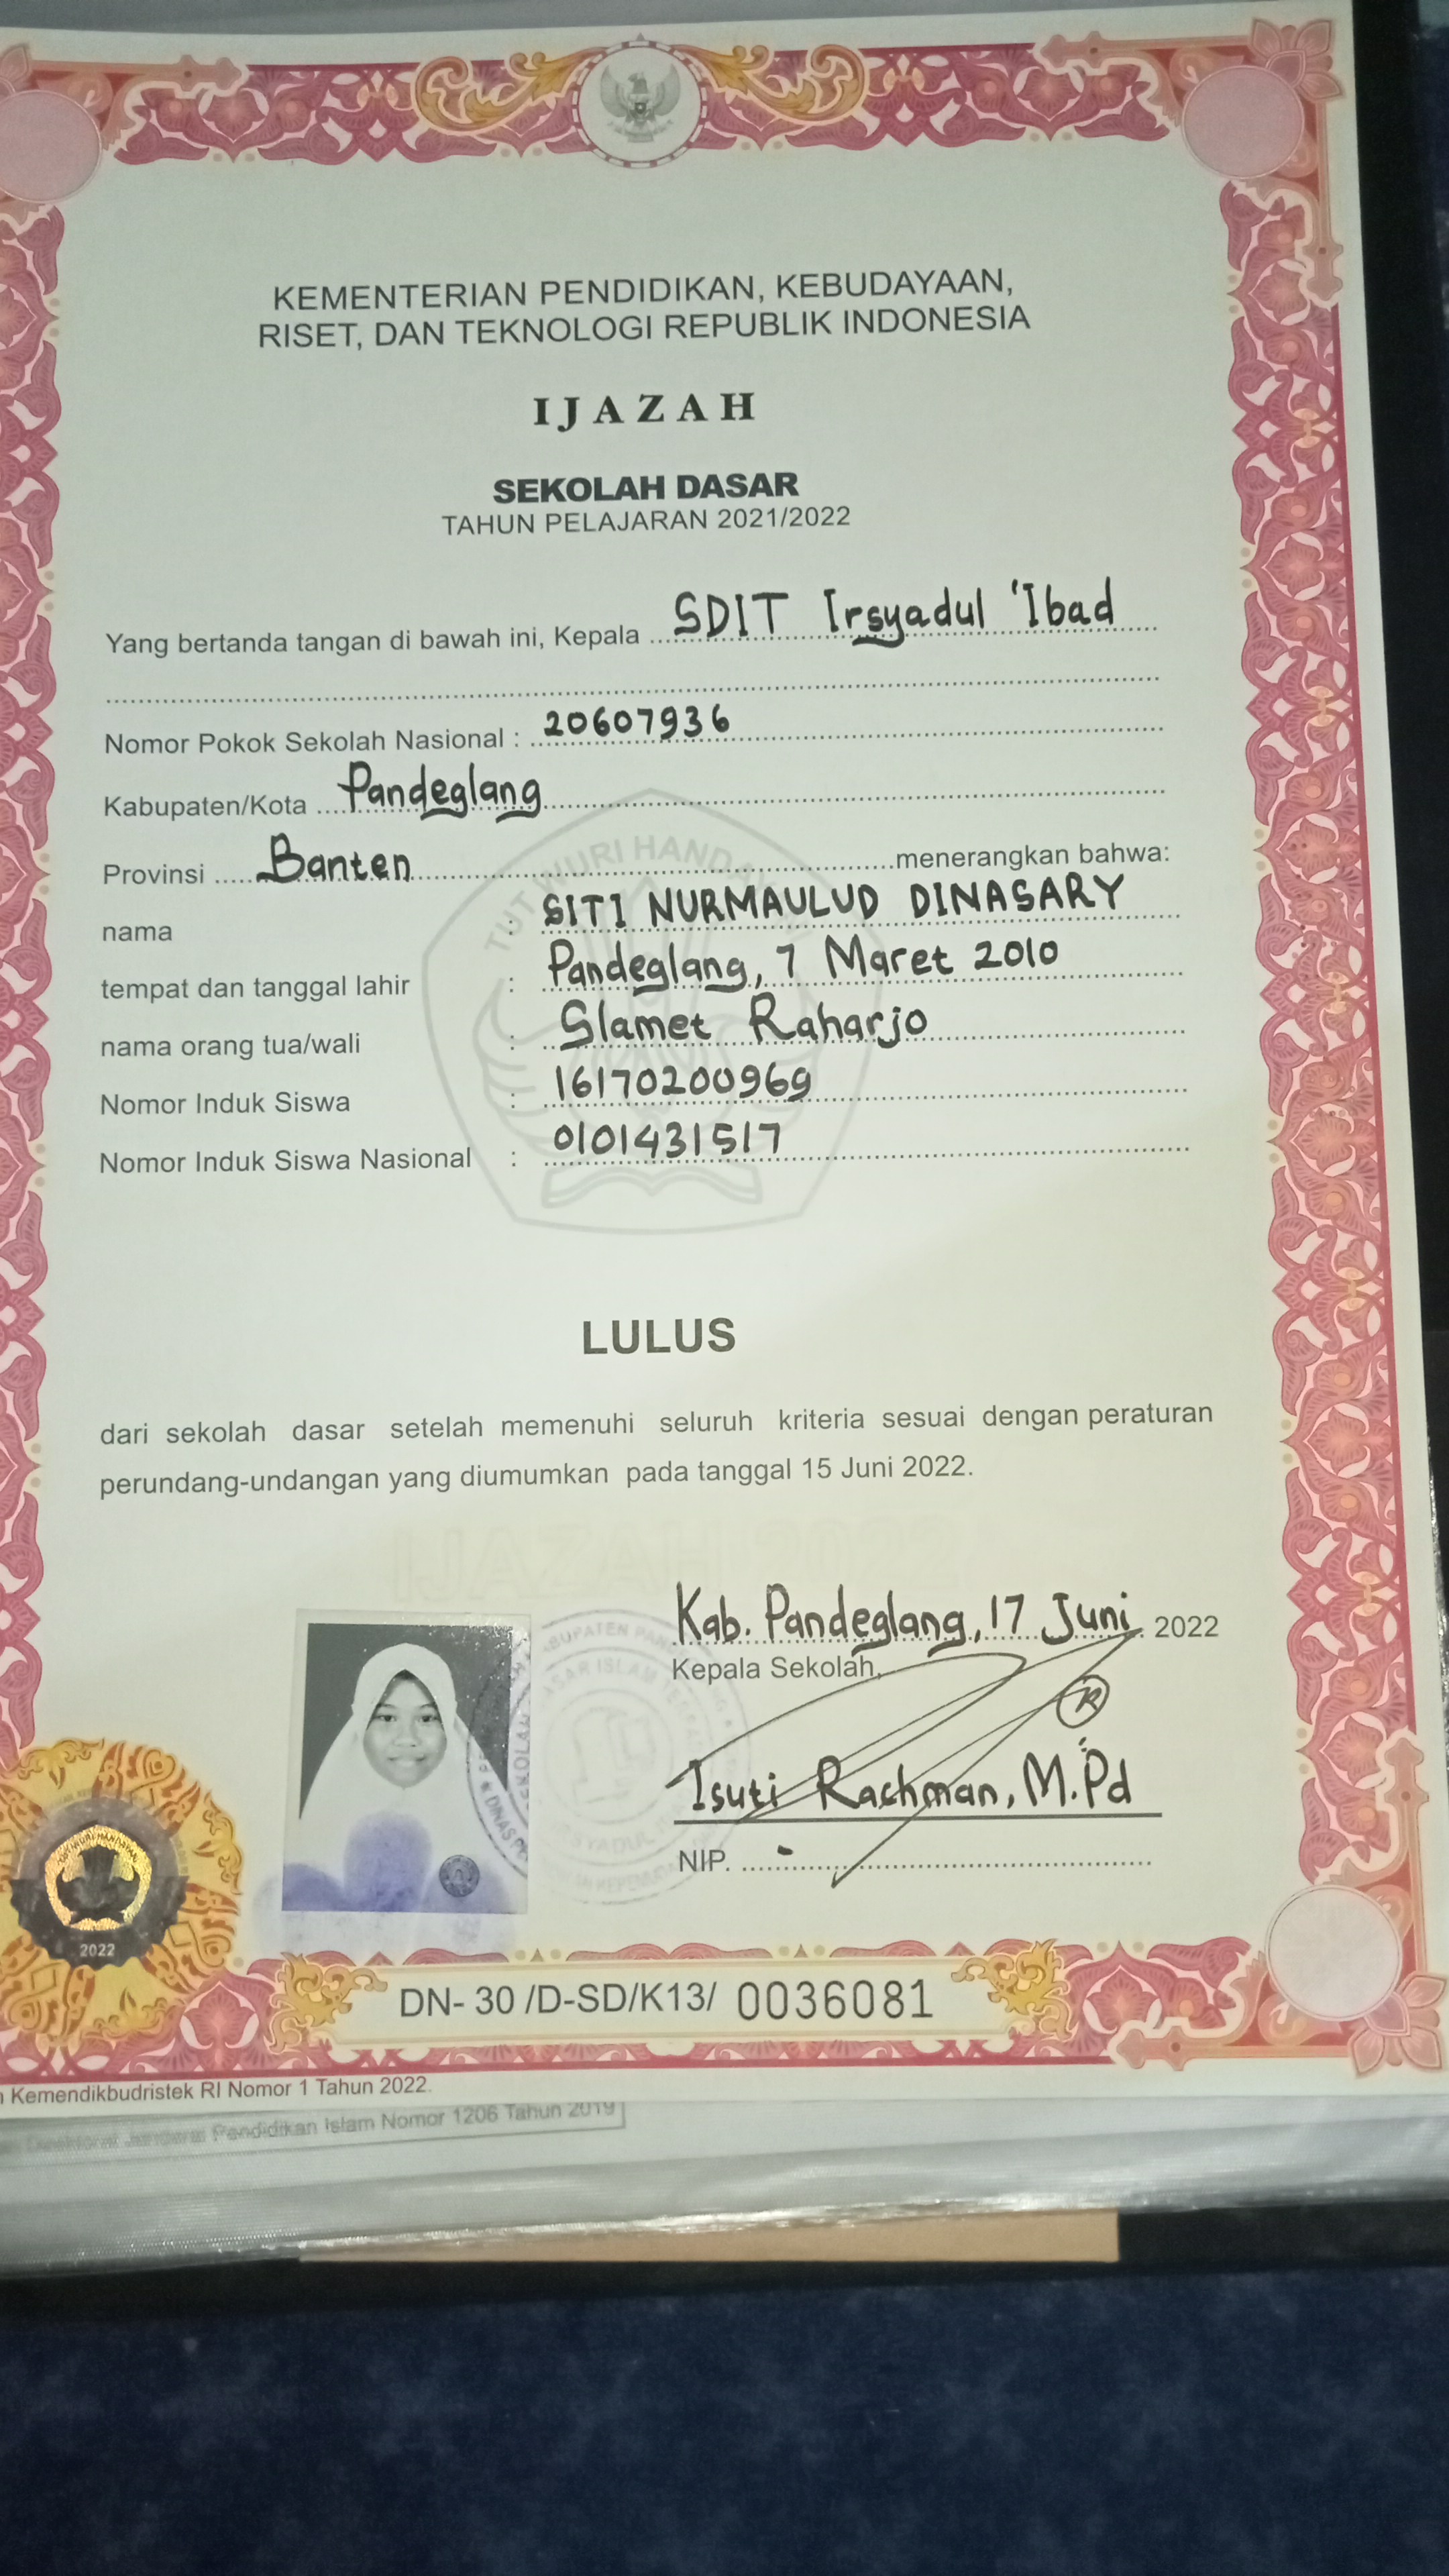 KEMENTERIAN PENDIDIKAN, KEBUDAYAAN,
RISET, DAN TEKNOLOGI REPUBLIK INDONESIA
IJAZAH
SEKOLAH DASAR
TAHUN PELAJARAN 2021/2022
Yang bertanda tangan di bawah ini, Kepala SDIT Irsyadul 'Ibad
Nomor Pokok Sekolah Nasional : 20607936
Kabupaten/Kota Pandeglang
Provinsi Banten menerangkan bahwa:
nama : SITI NURMAULUD DINASARY
tempat dan tanggal lahir : Pandeglang, 7 Maret 2010
nama orang tua/wali : Slamet Raharjo
Nomor Induk Siswa : 16170200969
Nomor Induk Siswa Nasional : 0101431517
TUT WURI HANDAYANI
LULUS
dari sekolah dasar setelah memenuhi seluruh kriteria sesuai dengan peraturan
perundang-undangan yang diumumkan pada tanggal 15 Juni 2022.
IJAZAH 2022
Kab. Pandeglang, 17 Juni 2022
Kepala Sekolah,
Isuti Rachman, M.Pd
NIP. -
2022
DN- 30 /D-SD/K13/ 0036081
Kemendikbudristek RI Nomor 1 Tahun 2022.
Pendidikan Islam Nomor 1206 Tahun 2019